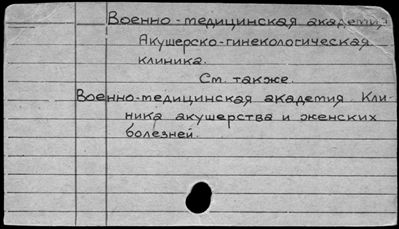 Военно-медицинская академия.
Акушерско-гинекологическая
клиника.
См. также.
Военно-медицинская академия. Кли-
ника акушерства и женских
болезней.